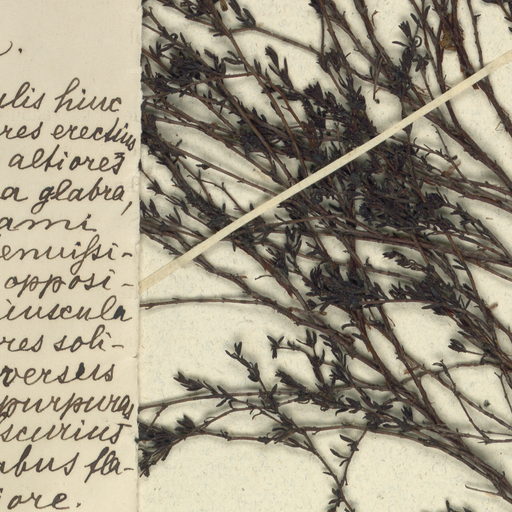 ulis hinc
res erectius
altiores
a glabra,
ami
enuissi-
opposi-
iuscula
res soli-
versus
purpuras
scurius
abus fla-
iore.